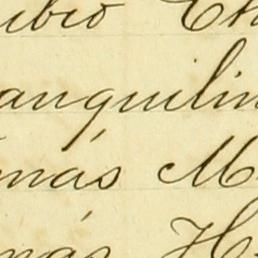 ubio Ch
anquilin
más M
más H